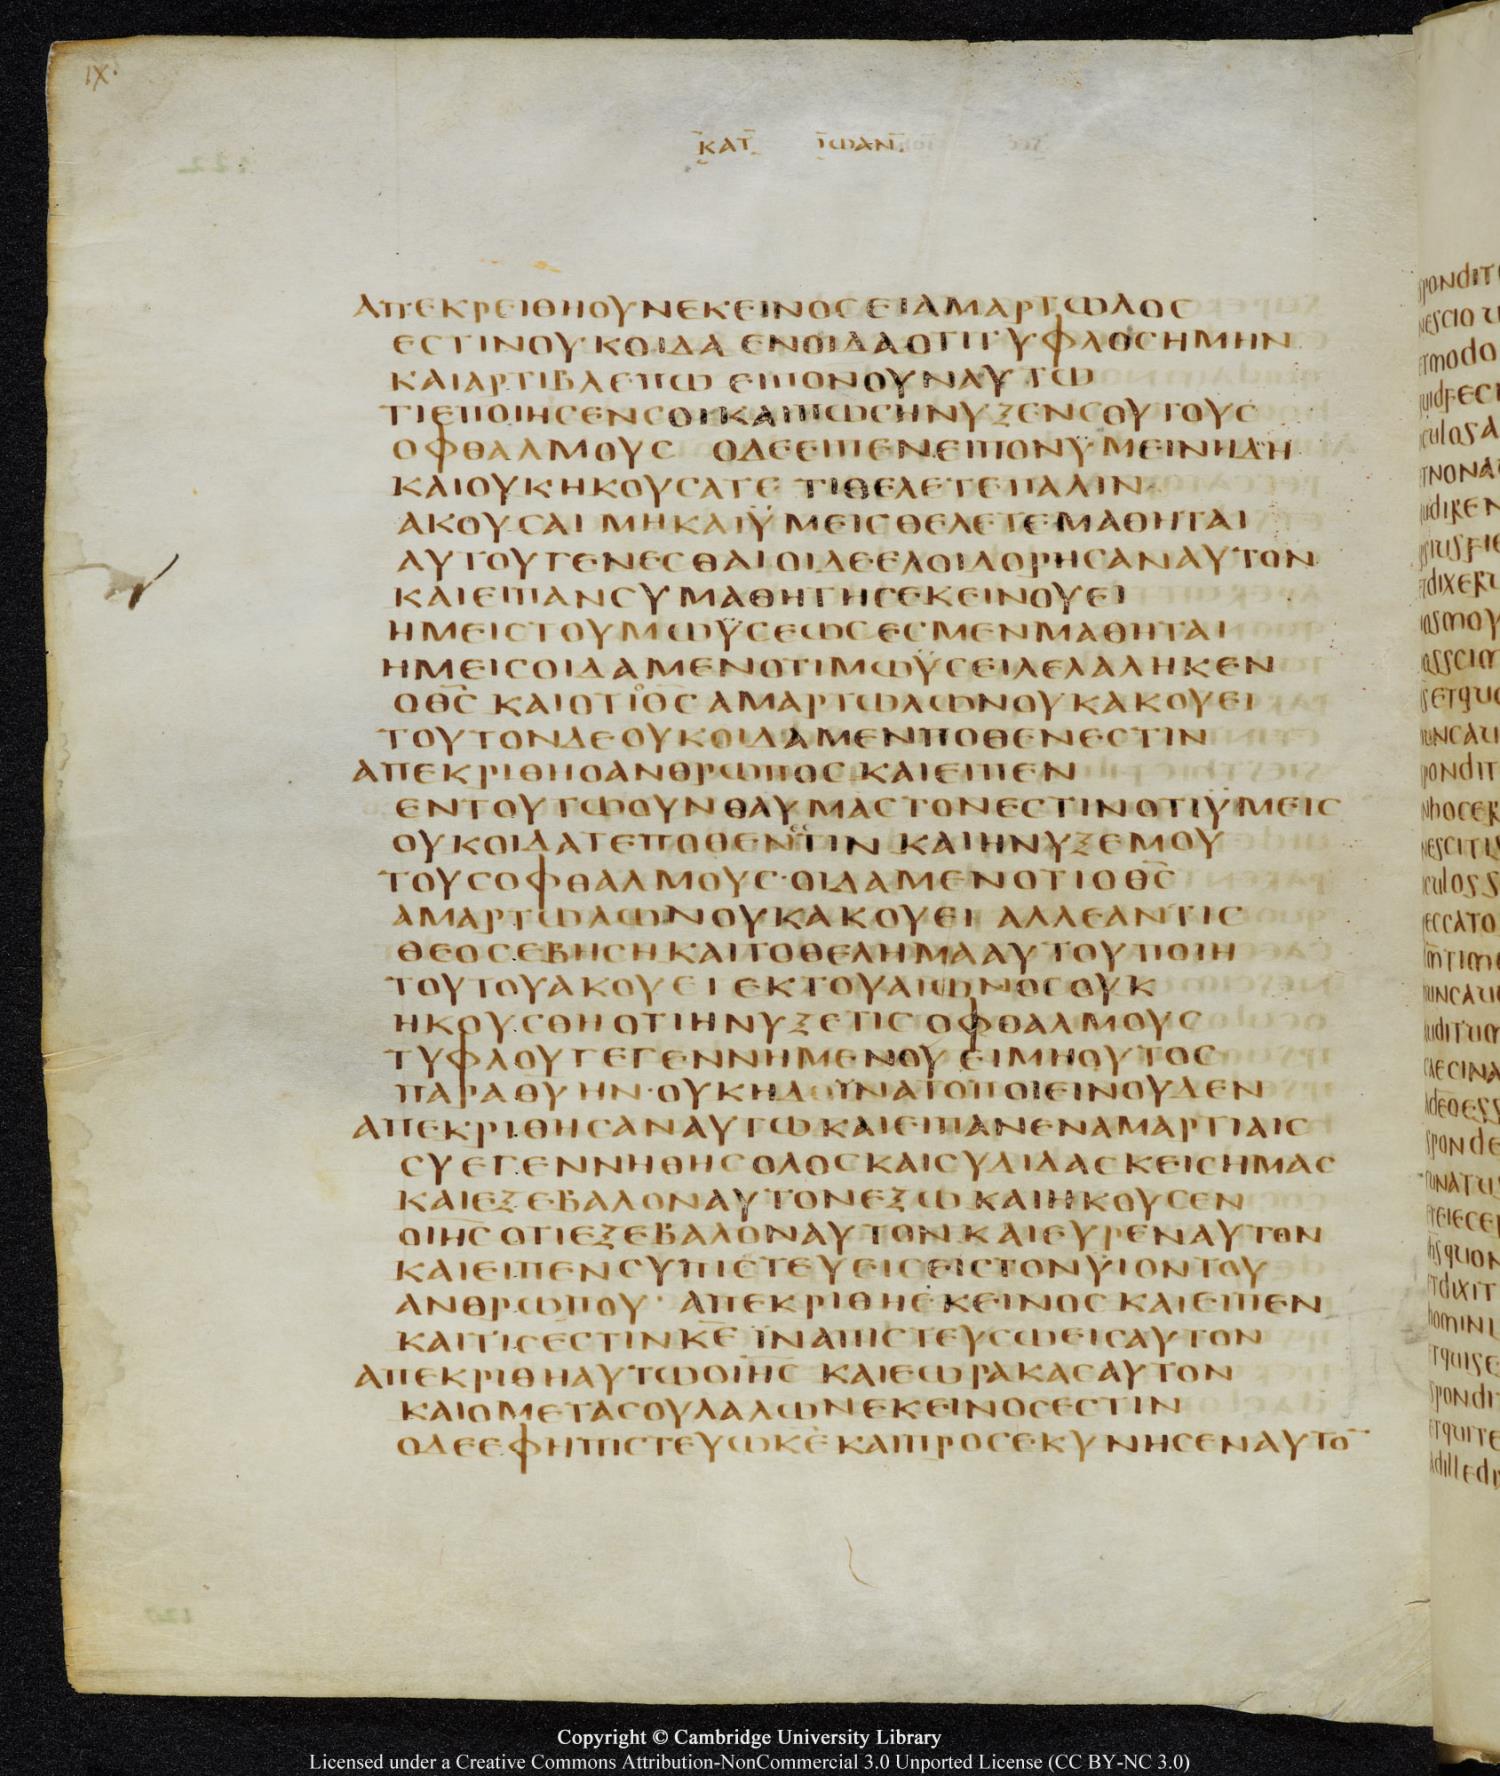 IX·
ΚΑΤ ΙΩΑΝ
ΑΠΕΚΡΕΙΘΗΟΥΝΕΚΕΙΝΟΣΕΙΑΜΑΡΤΩΛΟΣ
ΕΣΤΙΝΟΥΚΟΙΔΑ ΕΝΟΙΔΑΟΤΙΤΥΦΛΟΣΗΜΗΝ
ΚΑΙΑΡΤΙΒΛΕΠΩ ΕΙΠΟΝΟΥΝΑΥΤΩ
ΤΙΕΠΟΙΗΣΕΝΣΟΙΚΑΙΠΩΣΗΝΥΞΕΝΣΟΥΤΟΥΣ
ΟΦΘΑΛΜΟΥΣ ΟΔΕΕΙΠΕΝΕΙΠΟΝΫΜΕΙΝΗΔΗ
ΚΑΙΟΥΚΗΚΟΥΣΑΤΕ ΤΙΘΕΛΕΤΕΠΑΛΙΝ
ΑΚΟΥΣΑΙ ΜΗΚΑΙΫΜΕΙΣΘΕΛΕΤΕΜΑΘΗΤΑΙ
ΑΥΤΟΥΓΕΝΕΣΘΑΙΟΙΔΕΕΛΟΙΔΟΡΗΣΑΝΑΥΤΟΝ
ΚΑΙΕΙΠΑΝΣΥΜΑΘΗΤΗΣΕΚΕΙΝΟΥΕΙ
ΗΜΕΙΣΤΟΥΜΩΫΣΕΩΣΕΣΜΕΝΜΑΘΗΤΑΙ
ΗΜΕΙΣΟΙΔΑΜΕΝΟΤΙΜΩΫΣΕΙΛΕΛΑΛΗΚΕΝ
ΟΘ̅Σ̅ ΚΑΙΟΤΙΟΘ̅Σ̅ΑΜΑΡΤΩΛΩΝΟΥΚΑΚΟΥΕΙ
ΤΟΥΤΟΝΔΕΟΥΚΟΙΔΑΜΕΝΠΟΘΕΝΕΣΤΙΝ
ΑΠΕΚΡΙΘΗΟΑΝΘΡΩΠΟΣΚΑΙΕΙΠΕΝ
ΕΝΤΟΥΤΩΟΥΝΘΑΥΜΑΣΤΟΝΕΣΤΙΝΟΤΙΫΜΕΙΣ
ΟΥΚΟΙΔΑΤΕΠΟΘΕΝΕΣΤΙΝ ΚΑΙΗΝΥΞΕΜΟΥ
ΤΟΥΣΟΦΘΑΛΜΟΥΣ·ΟΙΔΑΜΕΝΟΤΙΟΘ̅Σ̅
ΑΜΑΡΤΩΛΩΝΟΥΚΑΚΟΥΕΙ ΑΛΛΕΑΝΤΙΣ
ΘΕΟΣΕΒΗΣΗΚΑΙΤΟΘΕΛΗΜΑΑΥΤΟΥΠΟΙΗ
ΤΟΥΤΟΥΑΚΟΥΕΙ ΕΚΤΟΥΑΙΩΝΟΣΟΥΚ
ΗΚΟΥΣΘΗΟΤΙΗΝΥΞΕΤΙΣ ΟΦΘΑΛΜΟΥΣ
ΤΥΦΛΟΥΓΕΓΕΝΝΗΜΕΝΟΥ ΕΙΜΗΟΥΤΟΣ
ΠΑΡΑΘΥΗΝ·ΟΥΚΗΔΥΝΑΤΟΠΟΙΕΙΝΟΥΔΕΝ
ΑΠΕΚΡΙΘΗΣΑΝΑΥΤΩΚΑΙΕΙΠΑΝΕΝΑΜΑΡΤΙΑΙΣ
ΣΥΕΓΕΝΝΗΘΗΣΟΛΟΣΚΑΙΣΥΔΙΔΑΣΚΕΙΣΗΜΑΣ
ΚΑΙΕΞΕΒΑΛΟΝΑΥΤΟΝΕΞΩ ΚΑΙΗΚΟΥΣΕΝ
ΟΙΗ̅Σ̅ ΟΤΙΕΞΕΒΑΛΟΝΑΥΤΟΝΚΑΙΕΥΡΕΝΑΥΤΟΝ
ΚΑΙΕΙΠΕΝΣΥΠΙΣΤΕΥΕΙΣΕΙΣΤΟΝΫΙΟΝΤΟΥ
ΑΝΘΡΩΠΟΥ· ΑΠΕΚΡΙΘΗΕΚΕΙΝΟΣΚΑΙΕΙΠΕΝ
ΚΑΙΤΙΣΕΣΤΙΝΚ̅Ε̅ ΙΝΑΠΙΣΤΕΥΣΩΕΙΣΑΥΤΟΝ
ΑΠΕΚΡΙΘΗΑΥΤΩΟΙΗ̅Σ̅ ΚΑΙΕΩΡΑΚΑΣΑΥΤΟΝ
ΚΑΙΟΜΕΤΑΣΟΥΛΑΛΩΝΕΚΕΙΝΟΣΕΣΤΙΝ
ΟΔΕΕΦΗΠΙΣΤΕΥΩΚ̅Ε̅ΚΑΙΠΡΟΣΕΚΥΝΗΣΕΝΑΥΤΟ̅
Copyright © Cambridge University Library
Licensed under a Creative Commons Attribution-NonCommercial 3.0 Unported License (CC BY-NC 3.0)